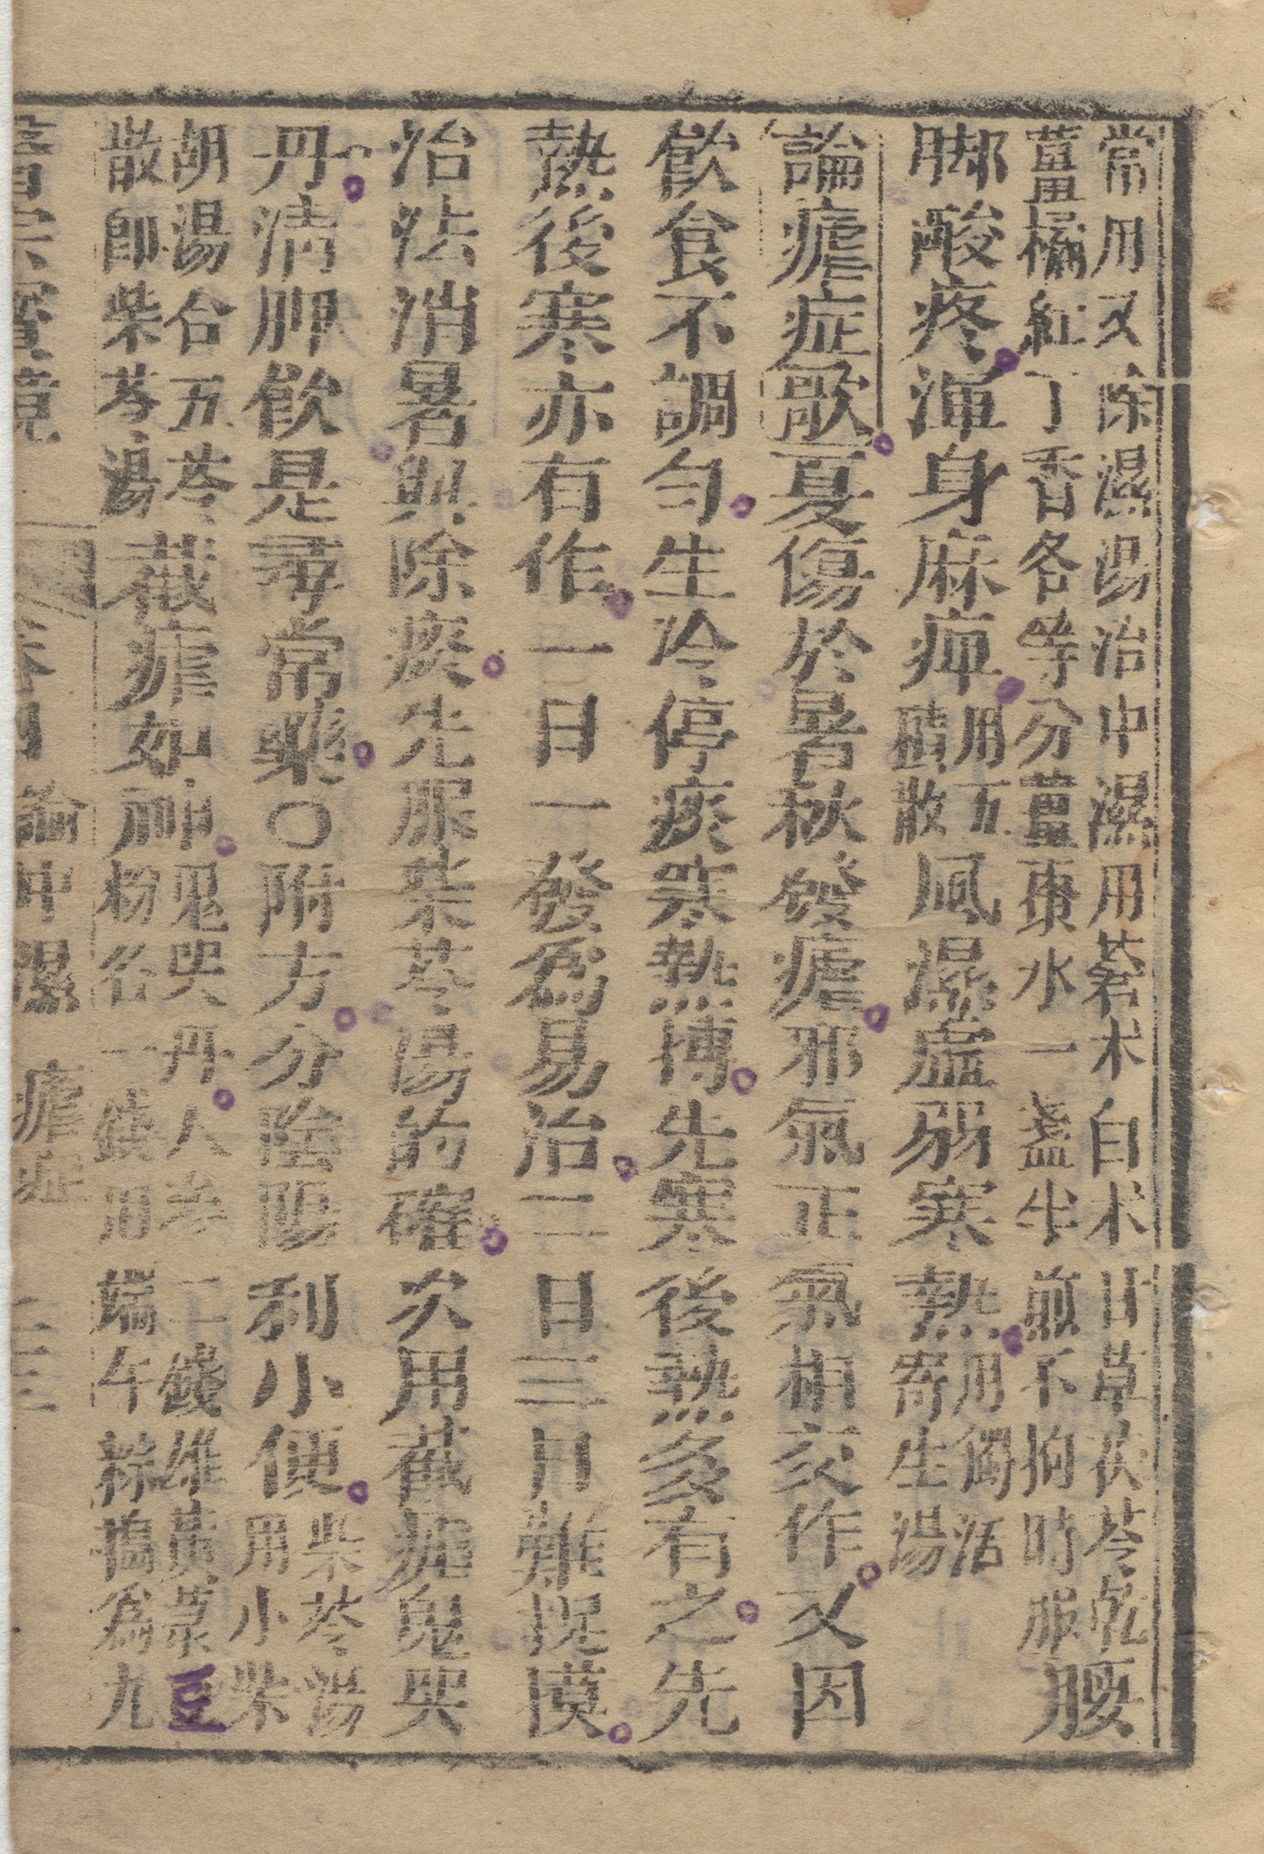 常用又除濕湯治中濕用蒼朮白朮甘草茯苓乾
薑橘紅丁香各等分薑棗水一盞半煎不拘時服腰
脚酸疼渾身麻痺用五積散風濕虛弱寒熱用獨活寄生湯
論瘧症歌夏傷於暑秋發瘧邪氣正氣相交作又因
飲食不調勻生冷停痰寒熱搏先寒後熱多有之先
熱後寒亦有作一日一發為易治二日三日難捉摸
治法消暑與除痰先服柴苓湯的確次用截瘧鬼哭
丹清脾飲是尋常藥〇附方分陰陽利小便柴苓湯用小柴
胡湯合五苓散即柴苓湯截瘧如神鬼哭丹人参二錢雄黃菉豆粉各一錢用端午粽搗為丸
卷四 論中濕 瘧症 二三